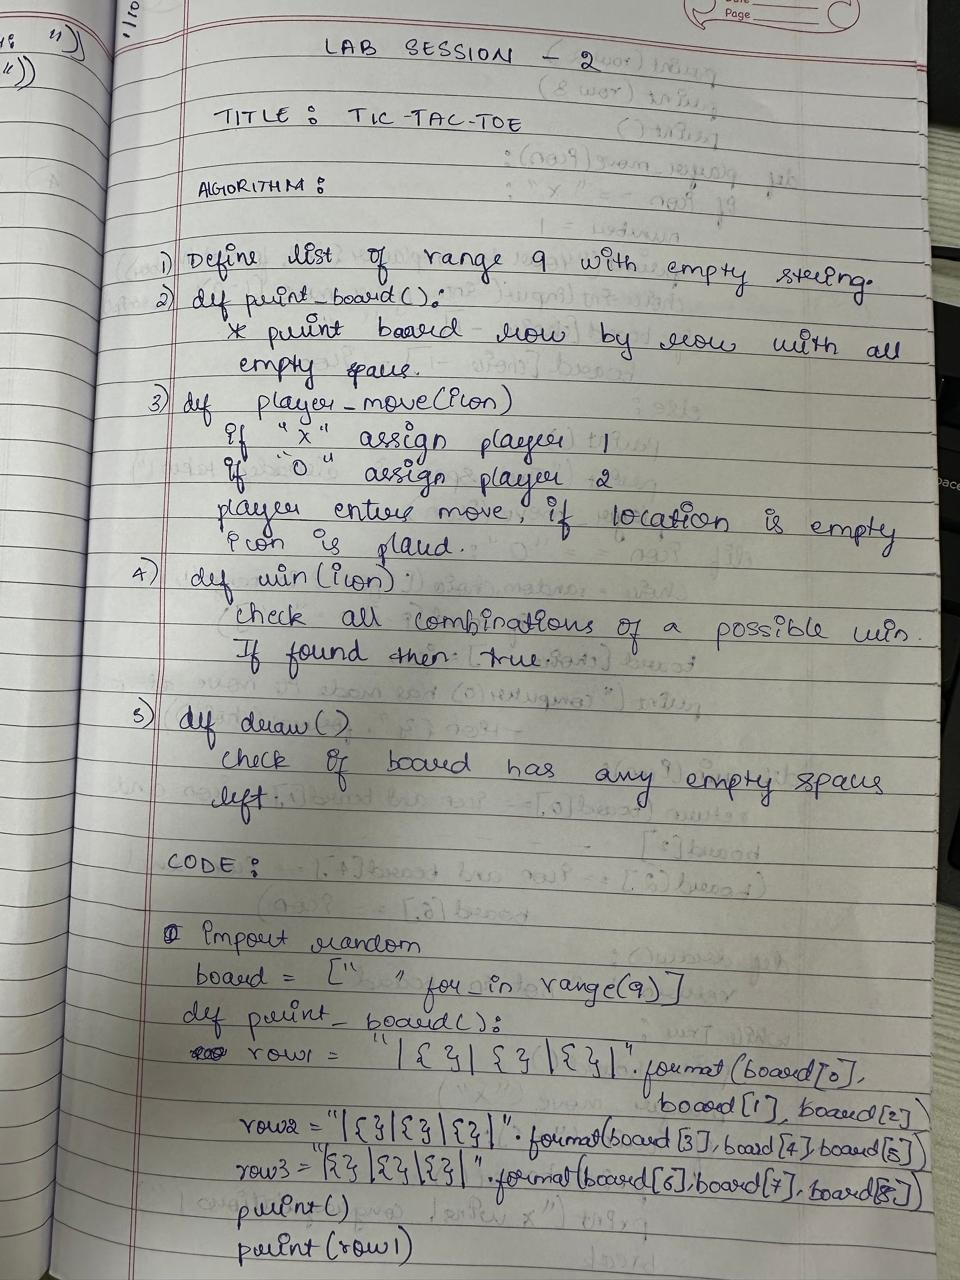 Page
"))
"))
LAB SESSION - 2
TITLE : TIC-TAC-TOE
ALGORITHM :
1) Define list of range 9 with empty string.
2) def print_board():
* print board row by row with all
empty spaces.
3) def player_move(icon)
if "x" assign player 1
if "O" assign player 2
player enters move, if location is empty
icon is placed.
4) def win(icon):
check all combinations of a possible win.
If found then true.
5) def draw()
check if board has any empty spaces
left.
CODE :
import random
board = [" " for _ in range(9)]
def print_board():
row1 = "|{}|{}|{}|".format(board[0],
board[1], board[2])
row2 = "|{}|{}|{}|".format(board[3], board[4], board[5])
row3 = "|{}|{}|{}|".format(board[6], board[7], board[8])
print()
print(row1)